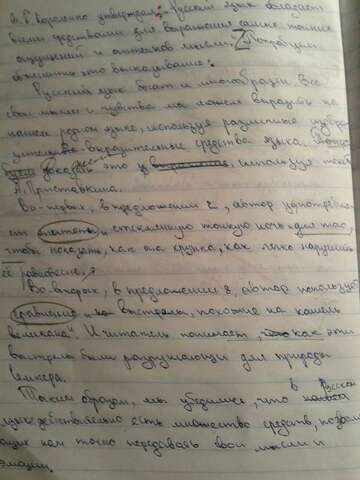 В. Г. Короленко утверждал: "Русский язык обладает
всеми средствами для выражения самых тонких
ощущений и оттенков мысли". Попробуем
объяснить это высказывание.
Русский язык богат и многообразен. Все
свои мысли и чувства мы можем выразить на
нашем родном языке, используя различные
выразительные средства языка.
доказать это, используя текст
А. Приставкина.
Во-первых, в предложении 2, автор употребляет
эпитеты, стеклянную тонкую ночь для того,
чтобы показать, как она хрупка, как легко нарушить
её равновесие.
Во вторых, в предложении 8, автор использует
сравнение выстрелы, похожие на кашель
великана". И читатель понимает, как эти
выстрелы были разрушающи для природы
вечера.
Таким образом, мы убедились, что в русском
языке действительно есть множество средств, позволяю
щие нам точно передавать свои мысли и
эмоции.